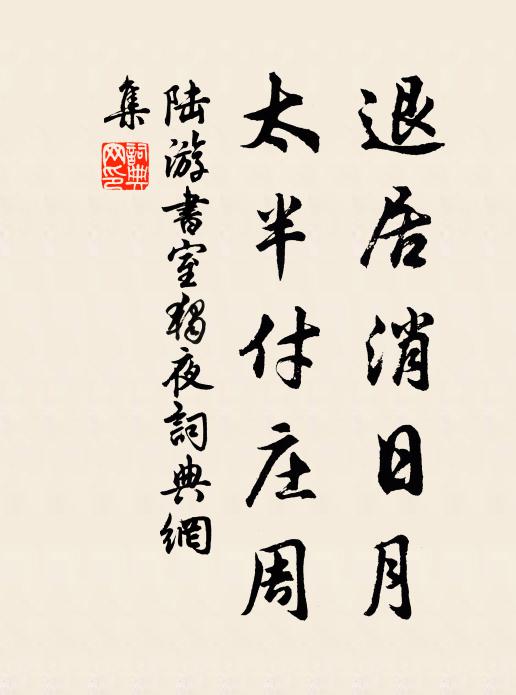 退居消日月
太半付庄周
陆游書室獨夜詞典網
集
詞典网印